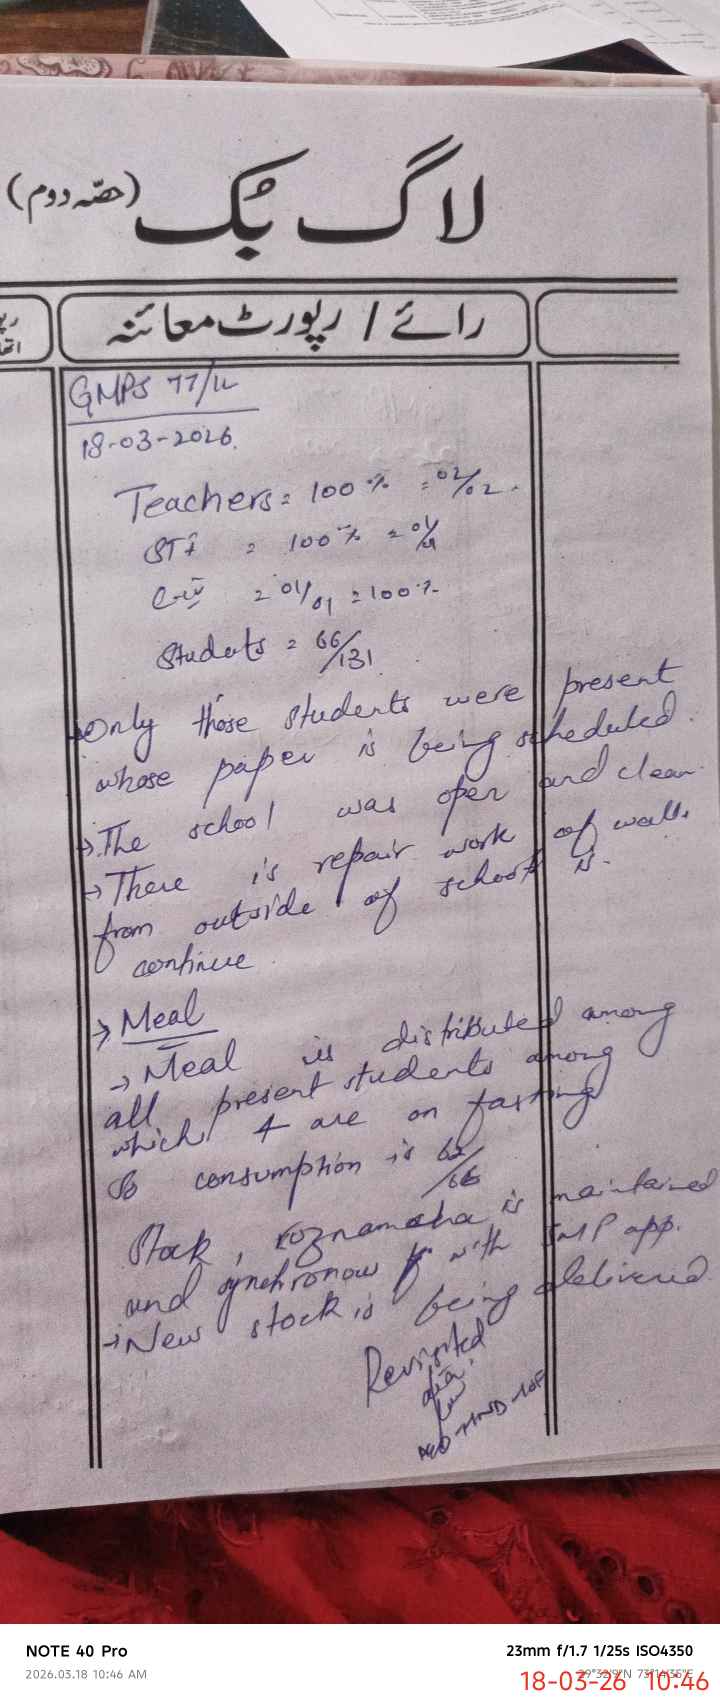 لاگ بُک (حصّہ دوم)
رائے / رپورٹ معائنہ
GMPS 77/1L
18-03-2026.
Teachers = 100 % = 02/02.
STI = 100 % = 01/01
= 01/01 = 100 %
Students = 66/131
→ Only those students were present
whose paper is being scheduled.
→ The school was open and clean.
→ There is repair work of walls
from outside of school is
continue.
→ Meal
→ Meal is distributed among
all present students among
which 4 are on fasting
So consumption is 62/66
Stock, roznamcha is maintained
and synchronow with SMP app.
→ New stock is being delivered.
NOTE 40 Pro
23mm f/1.7 1/25s ISO4350
2026.03.18 10:46 AM
18-03-26 10:46